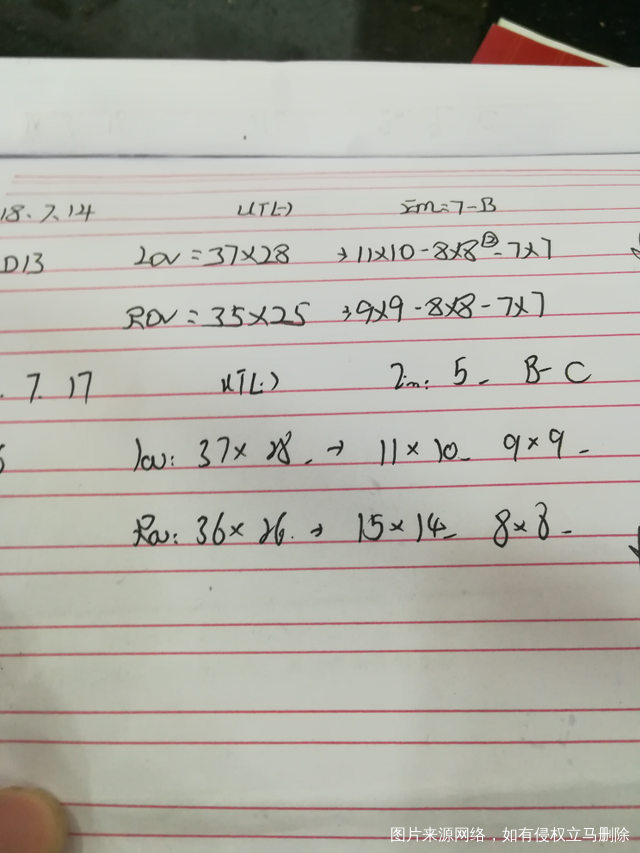 18.7.14 UT(-) Em=7-B
D13 Lov=37×28 → 11×10-8×8②-7×7
ROV=35×25 → 9×9-8×8-7×7
.7.17 UT(-) Em: 5- B-C
Lov: 37×28 - → 11×10- 9×9-
Rov: 36×26. → 15×14- 8×8-
图片来源网络，如有侵权立马删除